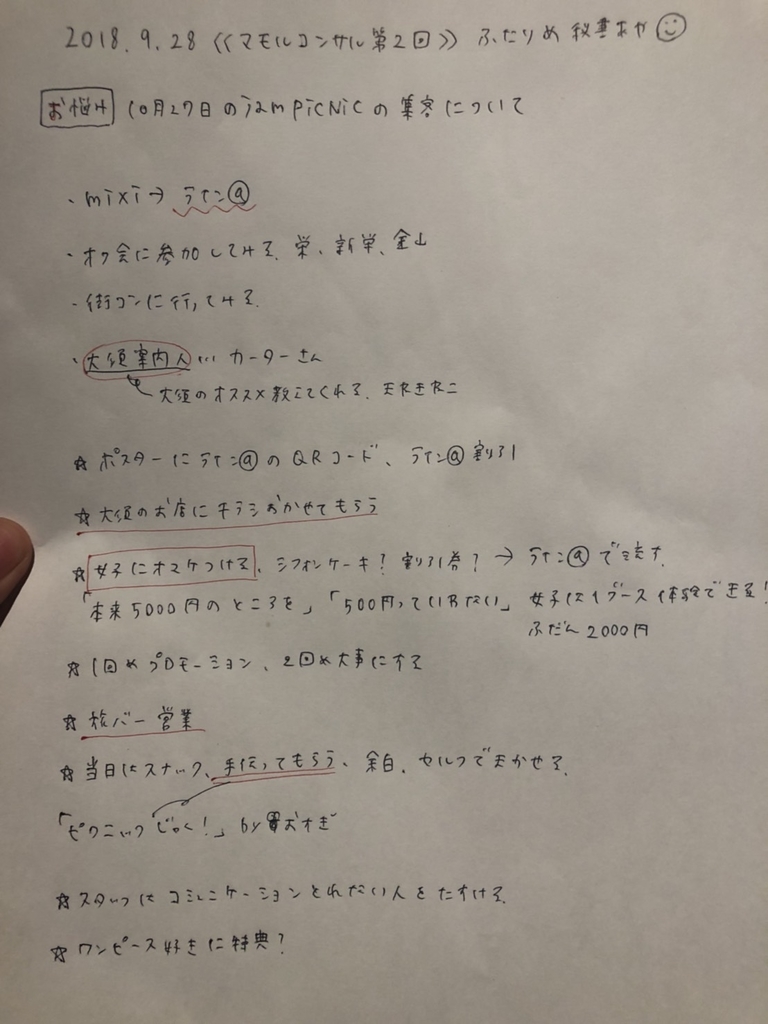 2018.9.28 《マモルコンサル第2回》 ふたりめ 秘書あや
お悩み 10月27日のjam piCNiCの集客について
・mixi→ライン@
・オフ会に参加してみる、栄、新栄、金山
・街コンに行ってみる。
・大須案内人… カーターさん
大須のオススメ教えてくれる、
☆ポスターにライン@のQRコード、ライン@割引
☆大須のお店にチラシおかせてもらう
☆女子にオマケつける、シフォンケーキ?割引券?→ライン@で流す。
「本来5000円のところを」「500円っていわない」 女子は1ブース体験できる!
ふだん2000円
☆1回めプロモーション、2回め大事にする
☆板バー営業
☆当日はスナック、手伝ってもらう、余白、セルフでまかせる。
「ピクニックじゃく!」by おすぎ
☆スタッフはコミュニケーションとれない人をたすける。
☆ワンピース好きに特典?